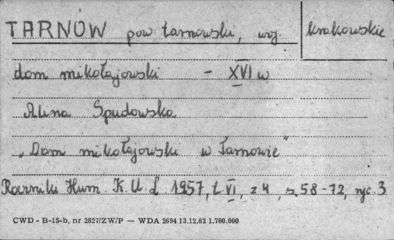 TARNÓW pow tarnowski, woj. krakowskie
dom mikołajowski - XVI w
Alina Spudowska
„Dom mikołajowski w Tarnowie"
Roczniki Hum. K.U.L 1957, t. VI, z 4, s. 58-72, ryc. 3
CWD - B-15-b, nr 2827/ZW/P — WDA 2694 13.12.62 1.700.000